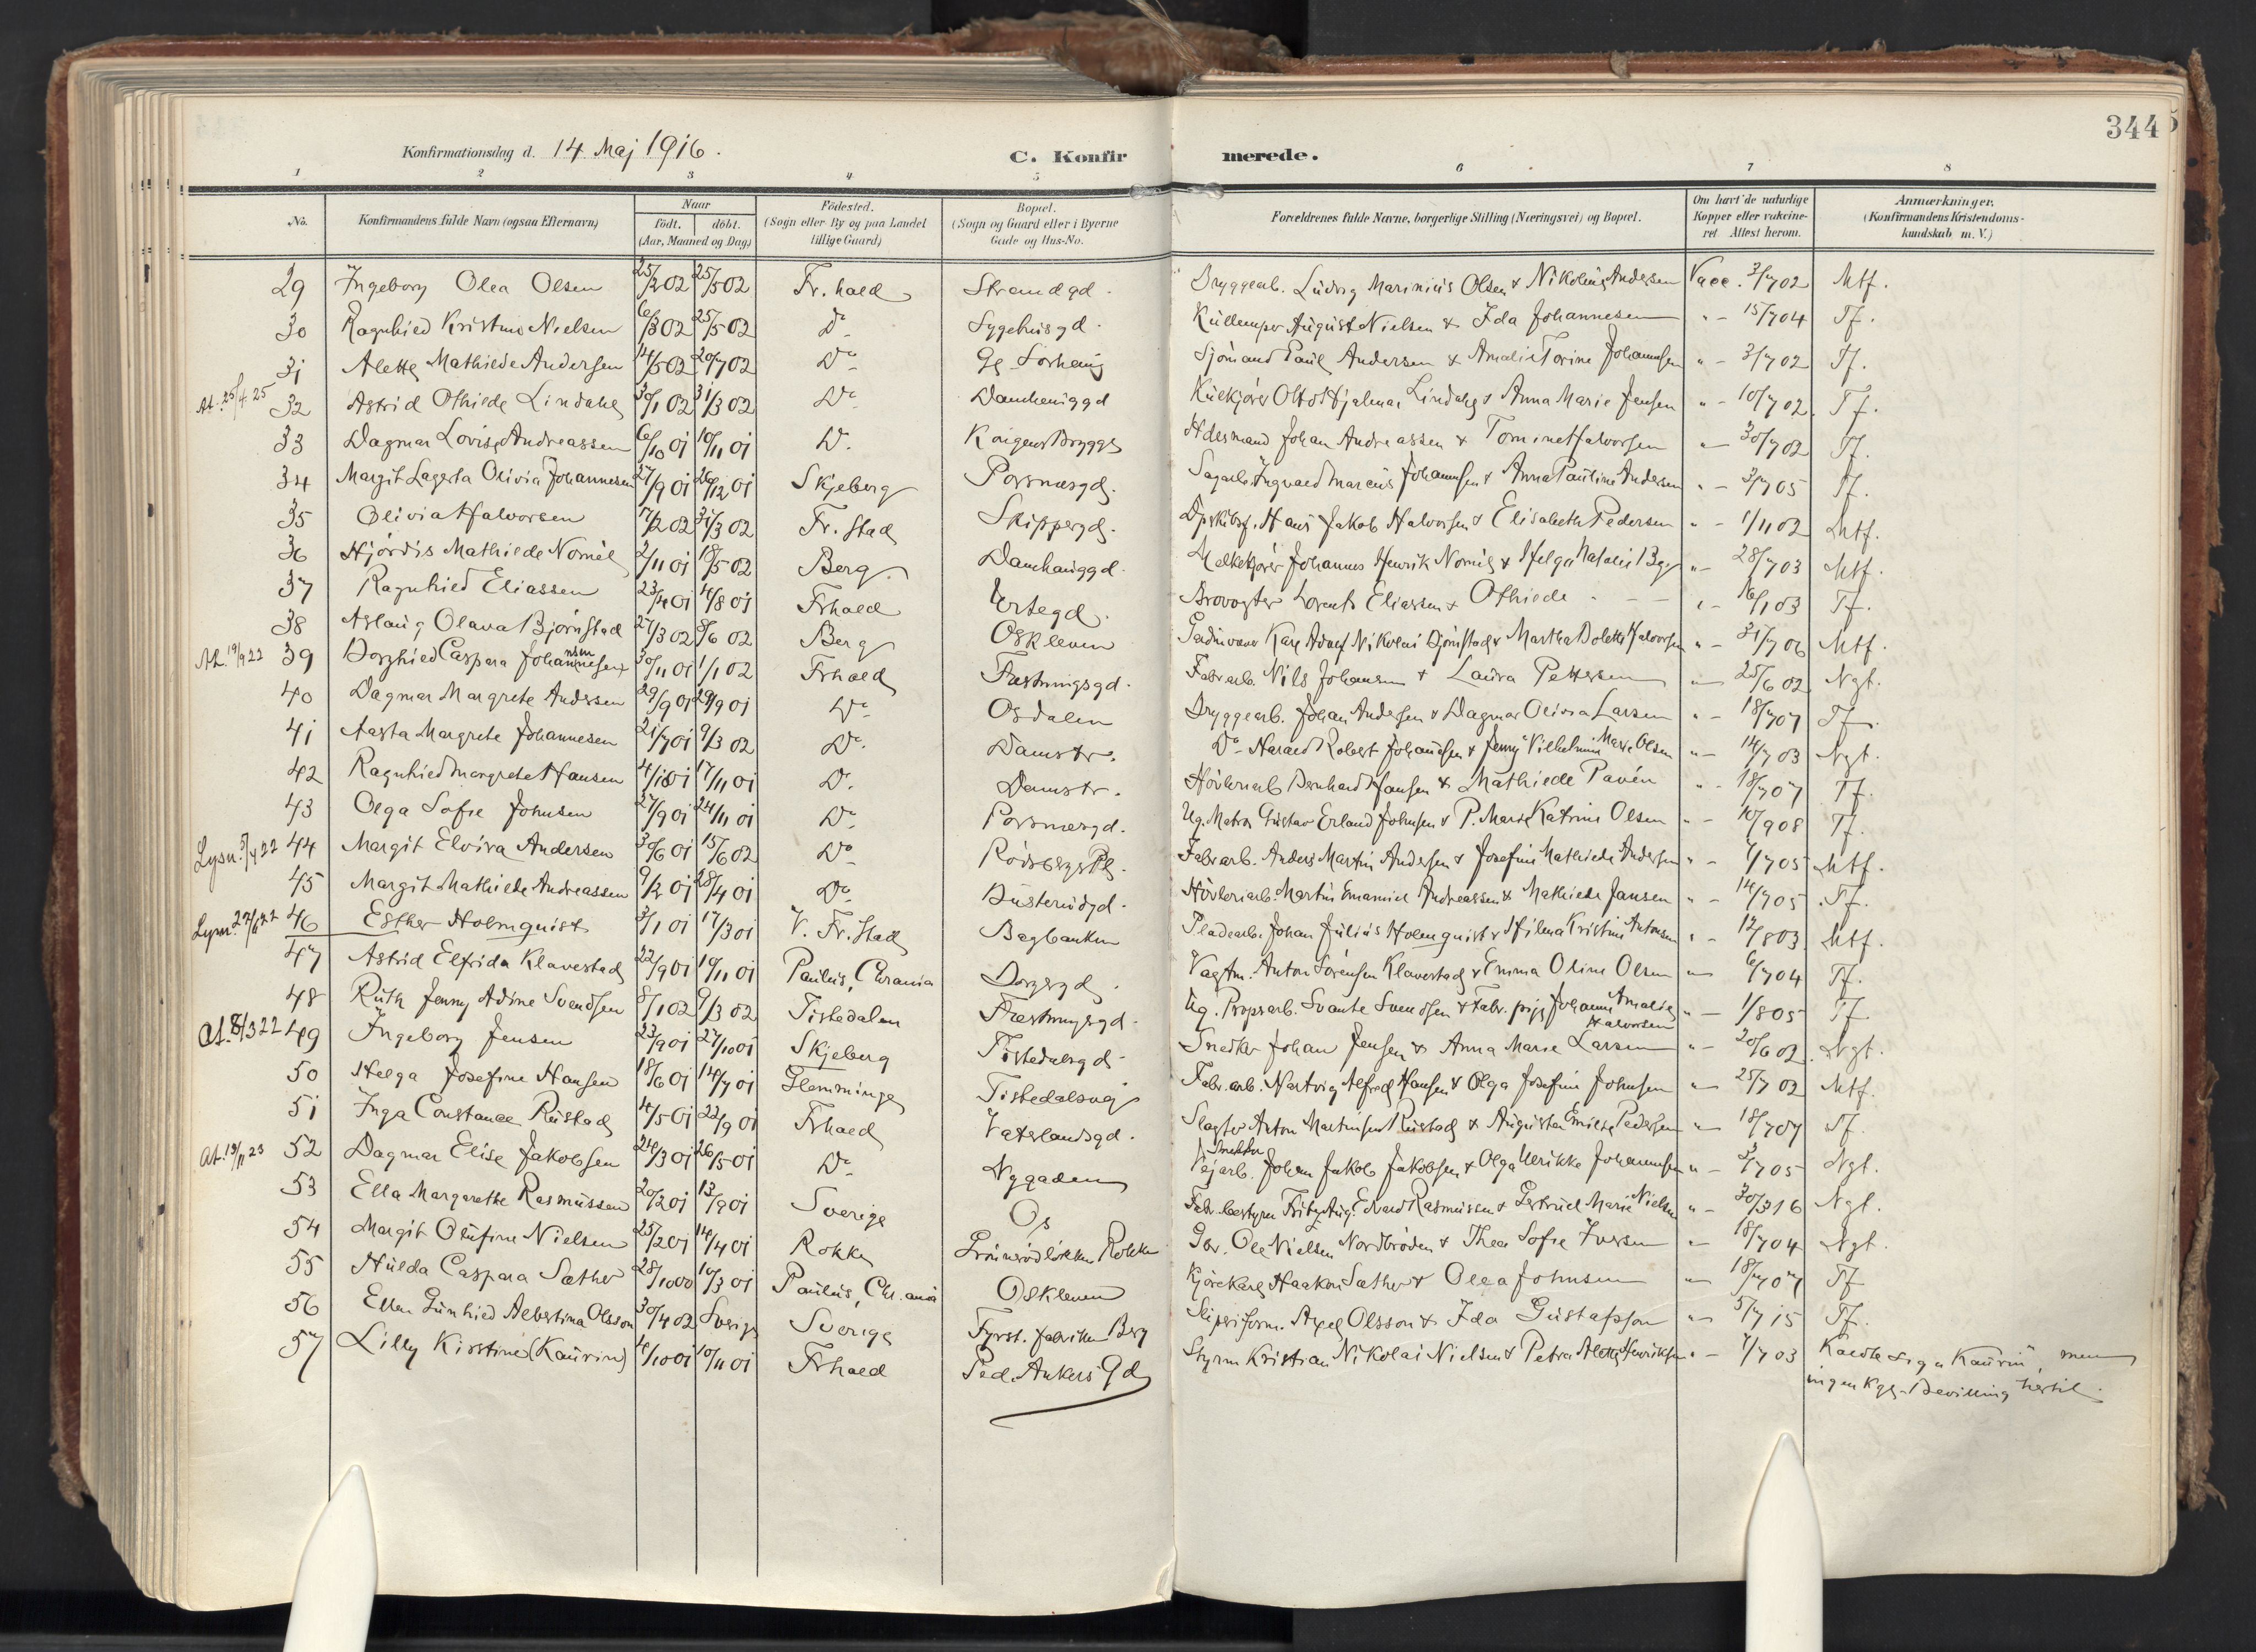 344
Konfirmationsdag d. 14 Maj 1916.
C. Konfirmerede.
1 2 3 4 5 6 7 8
No. Konfirmandens fulde Navn (ogsaa Efternavn) Naar født. døbt. (Aar, Maaned og Dag) Fødested. (Sogn eller By og paa Landet tillige Gaard) Bopæl. (Sogn og Gaard eller i Byerne Gade og Hus-No. Forældrenes fulde Navne, borgerlige Stilling (Næringsvei) og Bopæl. Om havt de naturlige Kopper eller vakcineret Attest herom. Anmærkninger. (Konfirmandens Kristendomskundskab m. V.)
29 Ingeborg Olea Olsen 25/2 02 25/5 02 Fr.hald Strandgd. Bryggearb. Ludvig Marinius Olsen & Nikoline Andersen Vacc. 3/7 02 Mtf.
30 Ragnhild Kristine Nielsen 6/3 02 25/5 02 Do Sygehusgd. Kullemper August Nielsen & Ida Johannesen " - 15/7 04 Tf.
31 Alette Mathilde Andersen 14/5 02 20/7 02 Do Gl. Sørhaug Sjømand Paul Andersen & Amalie Torine Johannesen " - 3/7 02 Tf.
At. 25/4 25 32 Astrid Othilde Lindahl 30/1 02 31/3 02 Do Damhauggd Kulkjører Olof Hjalmar Lindahl & Anna Marie Jensen " - 10/7 02 Tf.
33 Dagmar Lovise Andreassen 6/10 01 10/11 01 Do Kongens Brygge Johan Andreassen & Tomine Halvorsen " - 30/7 02 Tf.
34 Margit Lagerta Olivia Johannesen 27/9 01 26/12 01 Skjeberg Porsnesgd. Sagarb. Ingvald Marcius Johannesen & Anna Pauline Andersen " - 3/7 05 Tf.
35 Olivia Halvorsen 17/2 02 31/3 02 Fr.stad Skippergd. Hans Jakob Halvorsen & Elisabeth Pedersen " - 1/11 02 Mtf.
36 Hjørdis Mathilde Nornél 2/11 01 18/5 02 Berg Damhauggd. Melkekjører Johannes Henrik Nornél & Helga Natalie " - 28/7 03 Mtf.
37 Ragnhild Eliassen 23/4 01 4/8 01 Frhald Ertegd. Brovogter Lorents Eliassen & Othilde - - - " - 16/1 03 Tf.
38 Aslaug Olava Bjørnstad 27/3 02 8/6 02 Berg Oskleven Karl Adolf Nikolai Bjørnstad & Martha Bolette Halvorsen " - 31/7 06 Mtf.
At. 19/9 22 39 Borghild Caspara Johannesen 30/11 01 1/1 02 Frhald Fæstningsgd. Fabr.arb. Nils Johansen & Laura Pettersen " - 25/6 02 Ngt.
40 Dagmar Margrete Andersen 29/9 01 29/9 01 Do Osdalen Bryggearb. Johan Andersen & Dagmar Olivia Larsen " - 18/7 07 Tf.
41 Aasta Margrete Johannesen 21/7 01 9/3 02 Do Damstr. Do Harald Robert Johannesen & Jenny Vilhelmine Marie Olsen " - 14/7 03 Ngt.
42 Ragnhild Margrete Hansen 4/10 01 17/11 01 Do Damstr. Høvleriarb Bernhard Hansen & Mathilde Pavén " - 18/7 07 Tf.
43 Olga Sofie Johnsen 27/9 01 24/11 01 Do Porsnesgd. Ug. Matros Gustav Erland Johnsen & P. Marie Katrine Olsen " - 10/9 08 Tf.
Lysn. 3/7 22 44 Margit Elvira Andersen 30/6 01 15/6 02 Do Rødsbergs Pl. Fabr.arb. Anders Martin Andersen & Josefine Mathilde Andersen " - 7/7 05 Mtf.
45 Margit Mathilde Andreassen 9/2 01 28/4 01 Do Busterudgd. Høvleriarb. Martin Emanuel Andreassen & Mathilde Jansen " - 14/7 05 Tf.
Lysn. 22/6 22 46 Esther Holmquist 3/1 01 17/3 01 V. Fr.stad Bagbanken Pladearb. Johan Julius Holmquist & Hilma Kristine Antonsen " - 12/8 03 Mtf.
47 Astrid Elfrida Klavestad 22/9 01 10/11 01 Paulus, Chrania Borgergd. Vagtm. Anton Sørensen Klavestad & Emma Oline Olsen " - 6/7 04 Tf.
48 Ruth Jenny Adine Svendsen 8/1 02 9/3 02 Tistedalen Fæstningsgd. Ug. Propsarb. Svante Svendsen & Fabr.pige Johanne Amalie Halvorsen " - 1/8 05 Tf
At. 8/3 22 49 Ingeborg Jensen 23/9 01 27/10 01 Skjeberg Tistedalsgd. Snedker Johan Jensen & Anna Marie Larsen " - 20/6 02 Ngt.
50 Helga Josefine Hansen 18/6 01 14/7 01 Glemminge Tistedalsvej Fabr.arb. Hartvig Alfred Hansen & Olga Josefine Johnsen " - 25/7 02 Mtf.
51 Inga Constance Rustad 4/5 01 22/9 01 Frhald Vaterlandsgd. Slagter Anton Martinsen Rustad & Augusta Emilie Pedersen " - 18/7 07 Tf.
At. 13/11 23 52 Dagmar Elise Jakobsen 24/3 01 26/5 01 Do Nygaden Vejarb. Johan Jakob Jakobsen & Olga Ulrikke Johannesen " - 3/7 05 Ngt.
53 Ella Margarethe Rasmussen 20/2 01 13/9 01 Sverige Os Fabr.bestyrer Frits Aug. Edvard Rasmussen & Gertrud Marie Nielsen " - 30/3 16 Ngt.
54 Margit Olufine Nielsen 25/2 01 14/4 01 Rokke Grønnrødløkken Rokke Gbr. Ole Nielsen Nordbrøden & Thea Sofie Iversen " - 18/7 04 Ngt.
55 Hulda Caspara Sæther 28/10 00 10/3 01 Paulus, Chr.ania Oskleven Kjørekarl Haakon Sæther & Olga Johnsen " - 18/7 07 Tf
56 Ellen Gunhild Albertina Olsson 30/4 02 Sverige Sverige Fyrst. fabrikken Berg Sliperiform. Axel Olsson & Ida Gustafsson " - 5/7 15 Tf.
57 Lilly Kirstine (Kaurin) 4/10 01 10/11 01 Frhald Ped. Ankers Gd Styrm Kristian Nikolai Nielsen & Petra Alette Henriksen " - 7/7 03 Kaldte sig "Kaurin", men
ingen Kgl. Bevilling hertil.